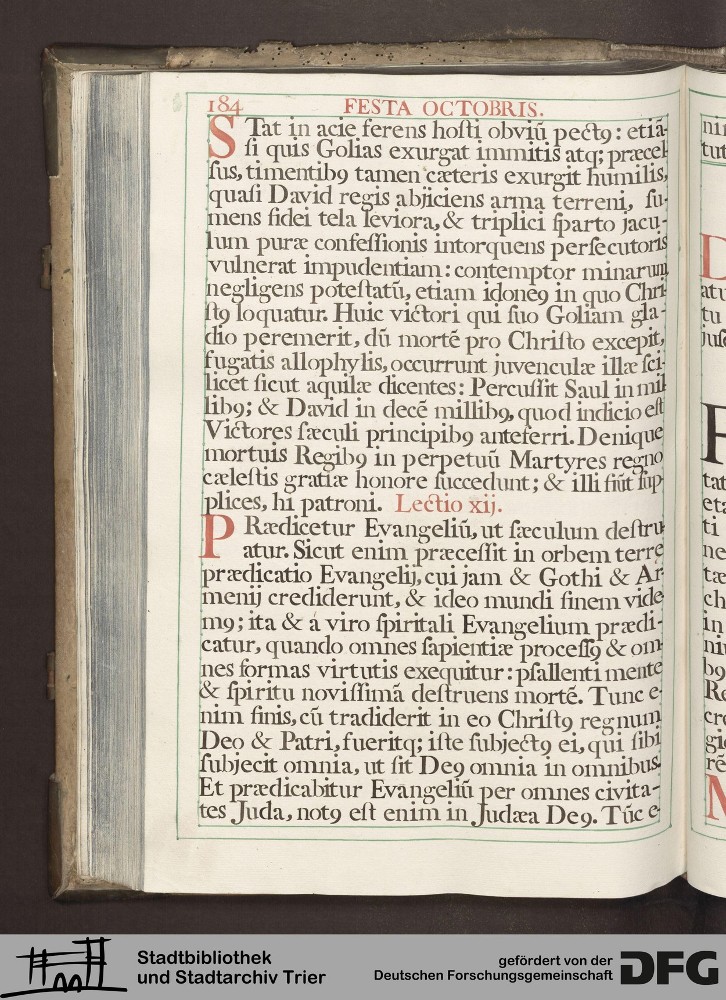 184 FESTA OCTOBRIS.
STat in acie ferens hoſti obviū pect9: etiā-
ſi quis Golias exurgat immitis atq; præcel-
ſus, timentib9 tamen cæteris exurgit humilis,
quaſi David regis abjiciens arma terreni, ſu-
mens fidei tela leviora, & triplici ſparto jacu-
lum puræ confeſſionis intorquens perſecutoris
vulnerat impudentiam: contemptor minarum
negligens poteſtatū, etiam idone9 in quo Chri-
ſt9 loquatur. Huic victori qui ſuo Goliam gla-
dio peremerit, dū mortē pro Chriſto excepit,
fugatis allophylis, occurrunt juvenculæ illæ ſci-
licet ſicut aquilæ dicentes: Percuſſit Saul in mil-
lib9; & David in decē millib9, quod indicio eſt
Victores ſæculi principib9 anteferri. Denique
mortuis Regib9 in perpetuū Martyres regno
cæleſtis gratiæ honore ſuccedunt; & illi fiūt ſup-
plices, hi patroni. Lectio xij.
PRædicetur Evangeliū, ut ſæculum deſtru-
atur. Sicut enim præceſſit in orbem terre
prædicatio Evangelij, cui jam & Gothi & Ar-
menij crediderunt, & ideo mundi finem vide-
m9; ita & á viro ſpiritali Evangelium prædi-
catur, quando omnes ſapientiæ proceſſ9 & om-
nes formas virtutis exequitur: pſallenti mente
& ſpiritu noviſſimā deſtruens mortē. Tunc e-
nim finis, cū tradiderit in eo Chriſt9 regnum
Deo & Patri, fueritq; iſte ſubject9 ei, qui ſibi
ſubjecit omnia, ut ſit De9 omnia in omnibus.
Et prædicabitur Evangeliū per omnes civita-
tes Juda, not9 eſt enim in Judæa De9. Tūc e-
Stadtbibliothek
und Stadtarchiv Trier
gefördert von der
Deutschen Forschungsgemeinschaft
DFG